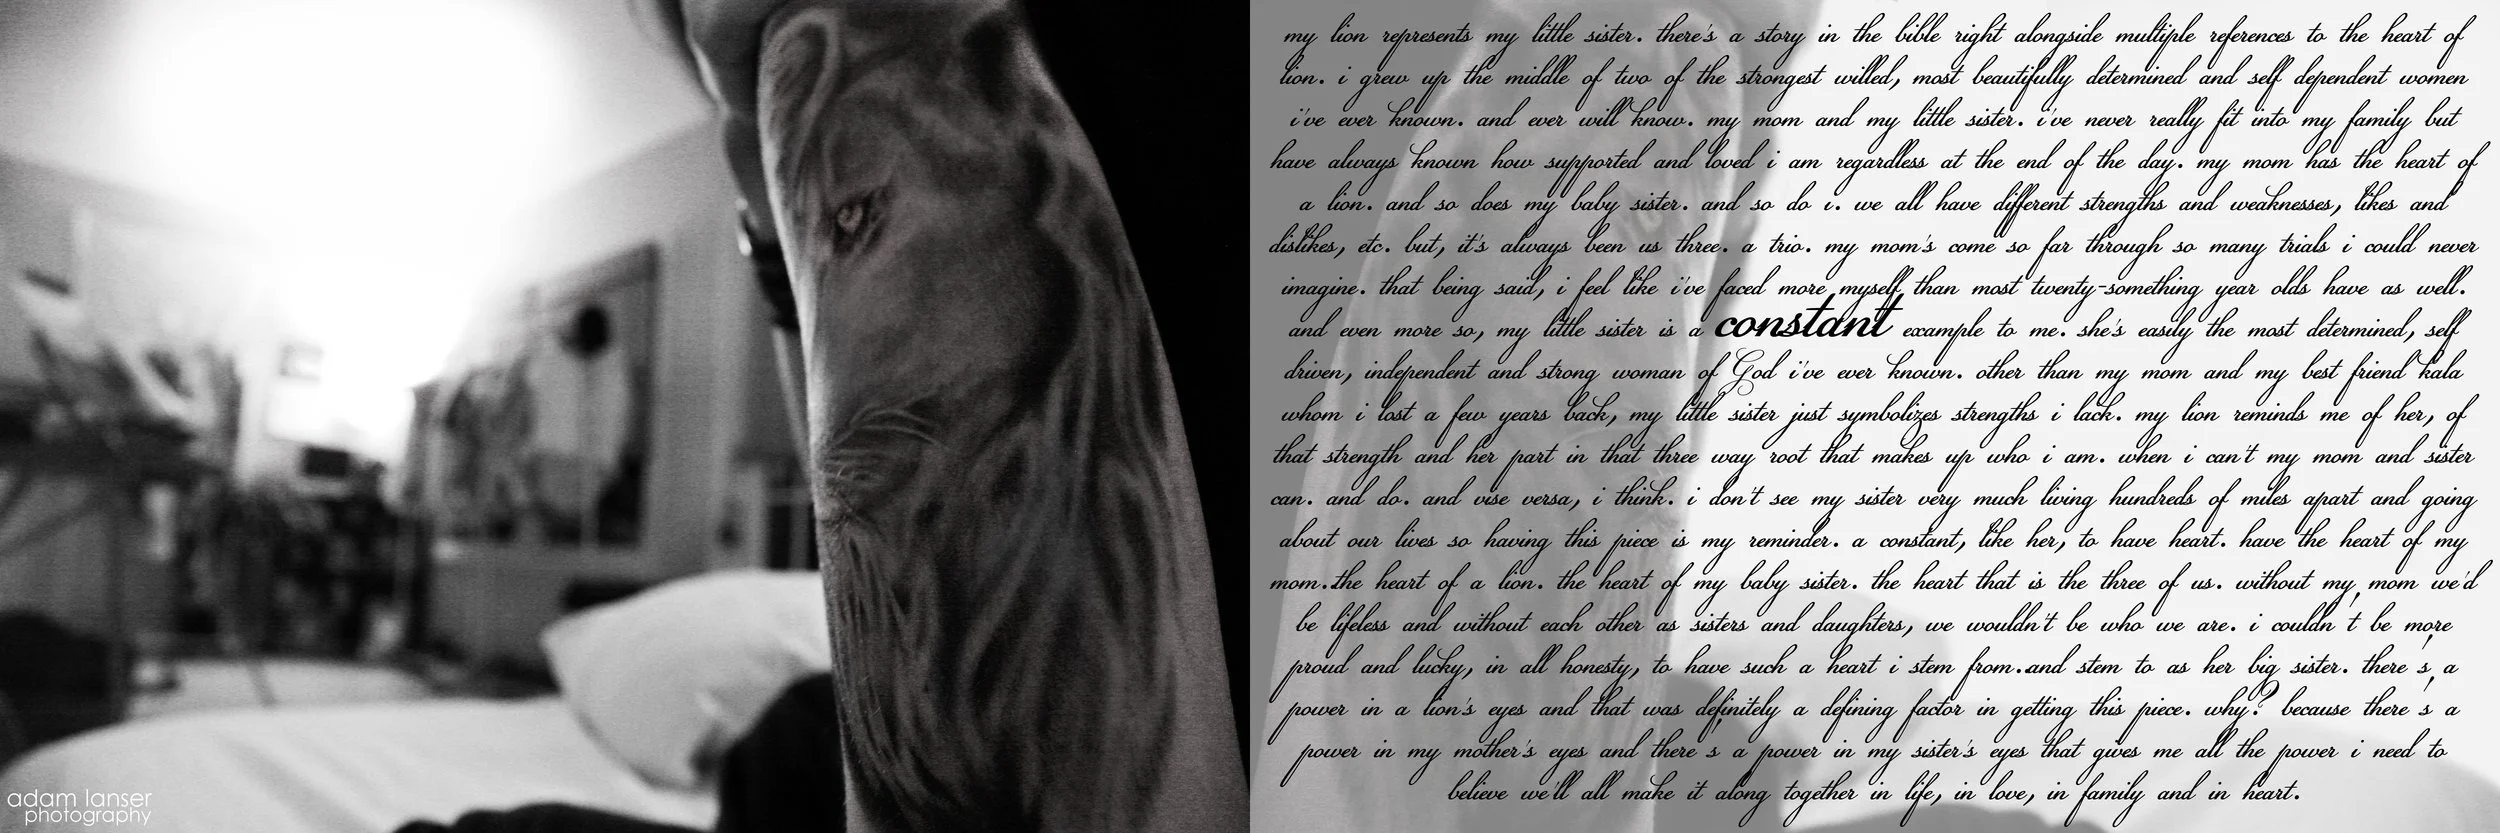 my lion represents my little sister. there's a story in the bible right alongside multiple references to the heart of
lion. i grew up the middle of two of the strongest willed, most beautifully determined and self dependent women
i've ever known. and ever will know. my mom and my little sister. i've never really fit into my family but
have always known how supported and loved i am regardless at the end of the day. my mom has the heart of
a lion. and so does my baby sister. and so do i. we all have different strengths and weaknesses, likes and
dislikes, etc. but, it's always been us three. a trio. my mom's come so far through so many trials i could never
imagine. that being said, i feel like i've faced more myself than most twenty-something year olds have as well.
and even more so, my little sister is a constant example to me. she's easily the most determined, self
driven, independent and strong woman of God i've ever known. other than my mom and my best friend kala
whom i lost a few years back, my little sister just symbolizes strengths i lack. my lion reminds me of her, of
that strength and her part in that three way root that makes up who i am. when i can't my mom and sister
can. and do. and vise versa, i think. i don't see my sister very much living hundreds of miles apart and going
about our lives so having this piece is my reminder. a constant, like her, to have heart. have the heart of my
mom..the heart of a lion. the heart of my baby sister. the heart that is the three of us. without my mom we'd
be lifeless and without each other as sisters and daughters, we wouldn't be who we are. i couldn't be more
proud and lucky, in all honesty, to have such a heart i stem from..and stem to as her big sister. there's a
power in a lion's eyes and that was definitely a defining factor in getting this piece. why? because there's a
power in my mother's eyes and there's a power in my sister's eyes that gives me all the power i need to
believe we'll all make it along together in life, in love, in family and in heart.
adam lanser
photography